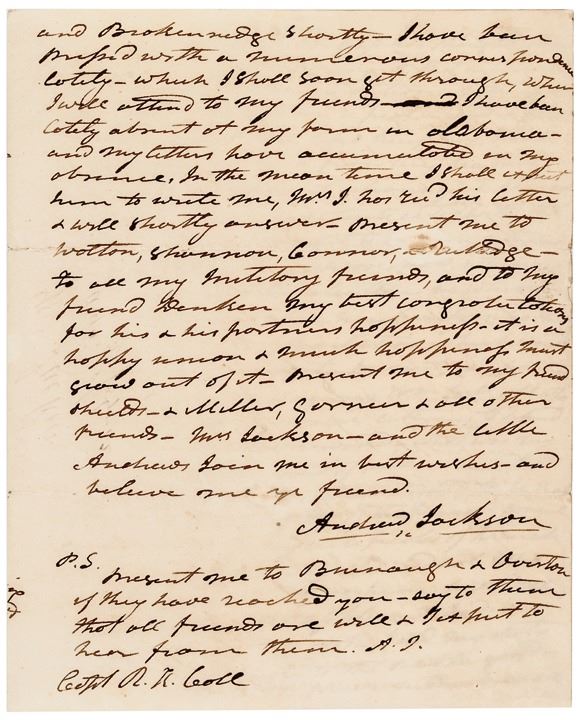 and Brokenredge shortly- I have been
pressed with a numerous correspondence
lately- which I shall soon get through, when
I will attend to my friends- and I have been
lately absent at my farm in alabama-
and my letters have accumulated in my
absence, In the mean time I shall expect
him to write me, Mrs J. has recd his letter
& will shortly answer- present me to
Wotton, Shannon, Connor, & Rutledge-
to all my military friends, and to my
friend my best congratulations
for his & his partners happiness- it is a
happy union & much happiness must
grow out of it- present me to my friend
Shields- & Miller, & all other
friends- Mrs Jackson- and the little
Andrews Join me in best wishes- and
believe me yr friend.
Andrew Jackson
P.S.
present me to Brunaugh & Overton
if they have reached you- say to them
that all friends are well & I expect to
hear from them. A.J.
Capt R. K. Call